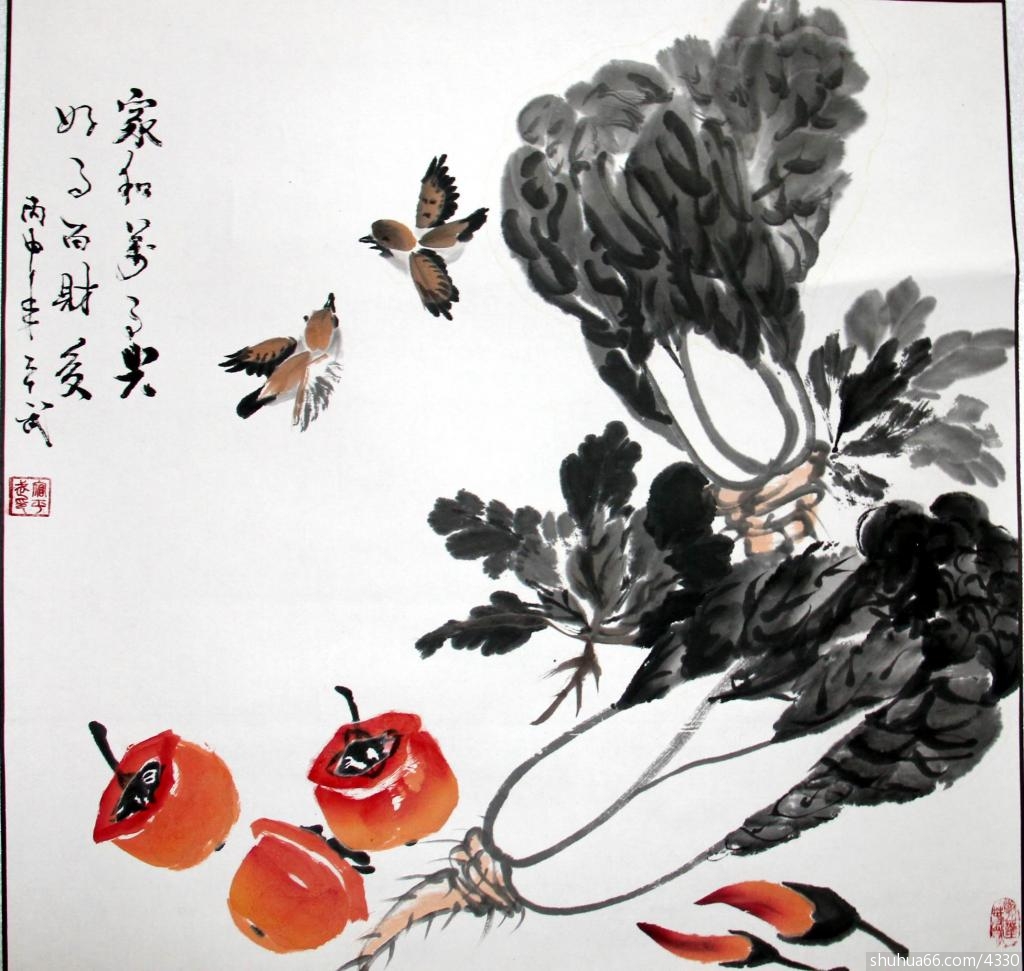 家和萬事兴
好事百財多
丙申年
shuhua66.com/4330